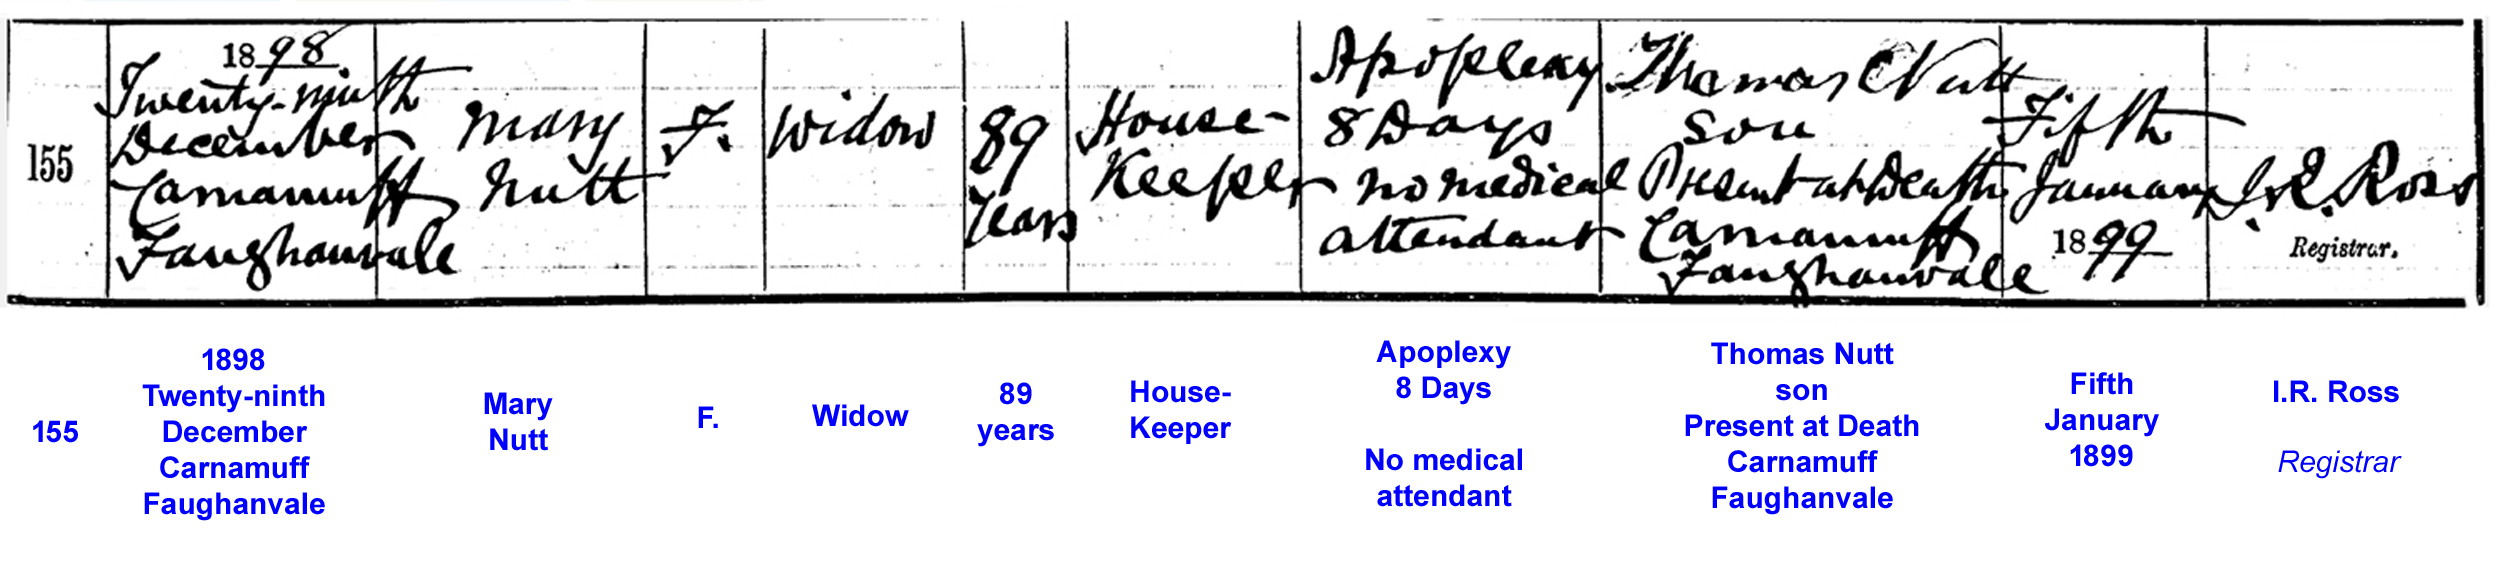 155
1898
Twenty-ninth
December
Carnamuff
Faughanvale
Mary
Nutt
F.
Widow
89
Years
House-
Keeper
Apoplexy
8 Days
no medical
attendant
Thomas Nutt
son
Present at Death
Carnamuff
Faughanvale
Fifth
January
1899
J.R. Ross
Registrar.
155
1898
Twenty-ninth
December
Carnamuff
Faughanvale
Mary
Nutt
F.
Widow
89
years
House-
Keeper
Apoplexy
8 Days
No medical
attendant
Thomas Nutt
son
Present at Death
Carnamuff
Faughanvale
Fifth
January
1899
I.R. Ross
Registrar